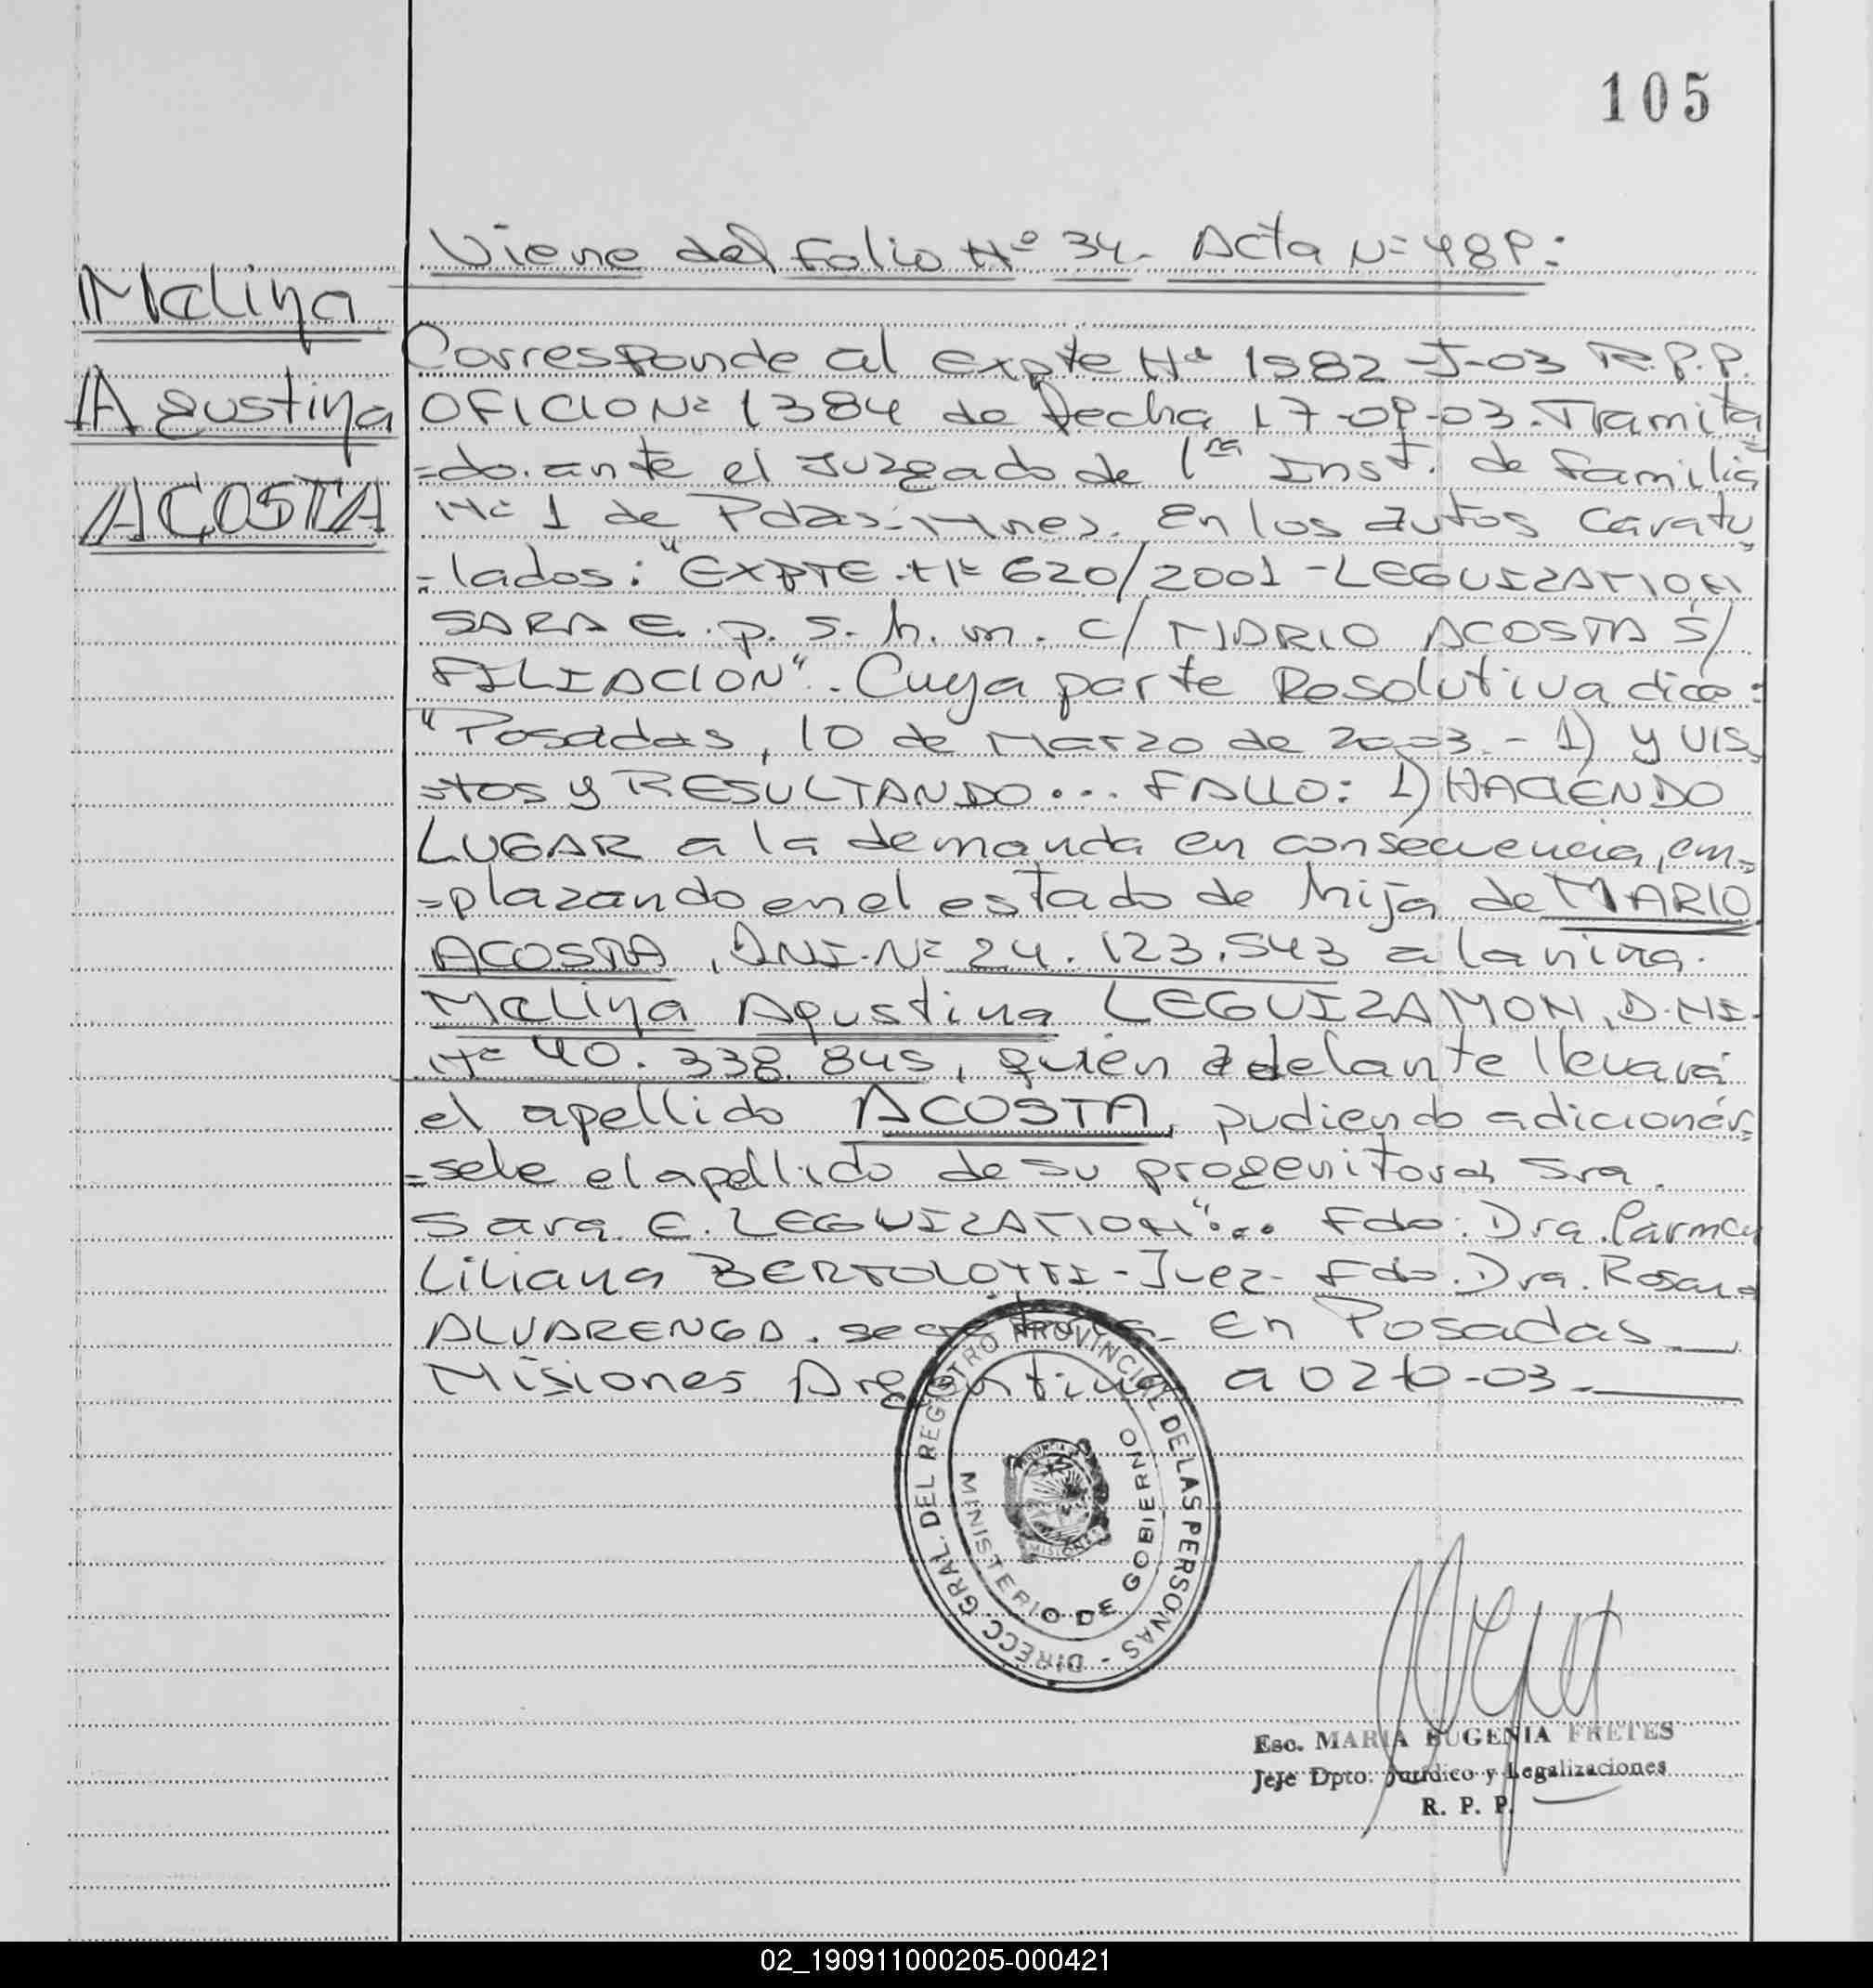 105
Viene del Folio Nº 34- Acta Nº 48P:
Malina
Agustina
ACOSTA
Corresponde al expte Nº 1982-J-03 R.P.P.
OFICIO Nº 1384 de fecha 17-09-03. Tramita
=do. ante el Juzgado de 1ra Inst. de familia
Nº 1 de Pdas-Mnes. En los autos Caratu
=lados: "EXPTE. Nº 620/2001 -LEGUIZAMON
SARA E. p. s. h. m. c/ MARIO ACOSTA S/
FILIACION". Cuya parte Resolutiva dice:
"Posadas, 10 de Marzo de 2003.- 1) y VIS
=tos y RESULTANDO... FALLO: 1) HACIENDO
LUGAR a la demanda en consecuencia, em=
=plazando en el estado de hija de MARIO
ACOSTA, DNI-Nº 24.123.543 a la niña.
Malina Agustina LEGUIZAMON, D.NI-
Nº 40.338.845, quien adelante llevará
el apellido ACOSTA, pudiendo adicionár=
=sele el apellido de su progenitora Sra.
Sara E. LEGUIZAMON"... Fdo: Dra. Carmen
Liliana BERTOLOTTI-Juez- Fdo. Dra. Rosana
ALVARENGA. secretaria- En Posadas
Misiones Argentina a 02-10-03.-
DIRECC. GRAL. DEL REGISTRO PROVINCIAL DE LAS PERSONAS -
MINISTERIO DE GOBIERNO
PROVINCIA DE
MISIONES
Esc. MARIA EUGENIA FRETES
Jefe Dpto. Jurídico y Legalizaciones
R. P. P.
02_190911000205-000421